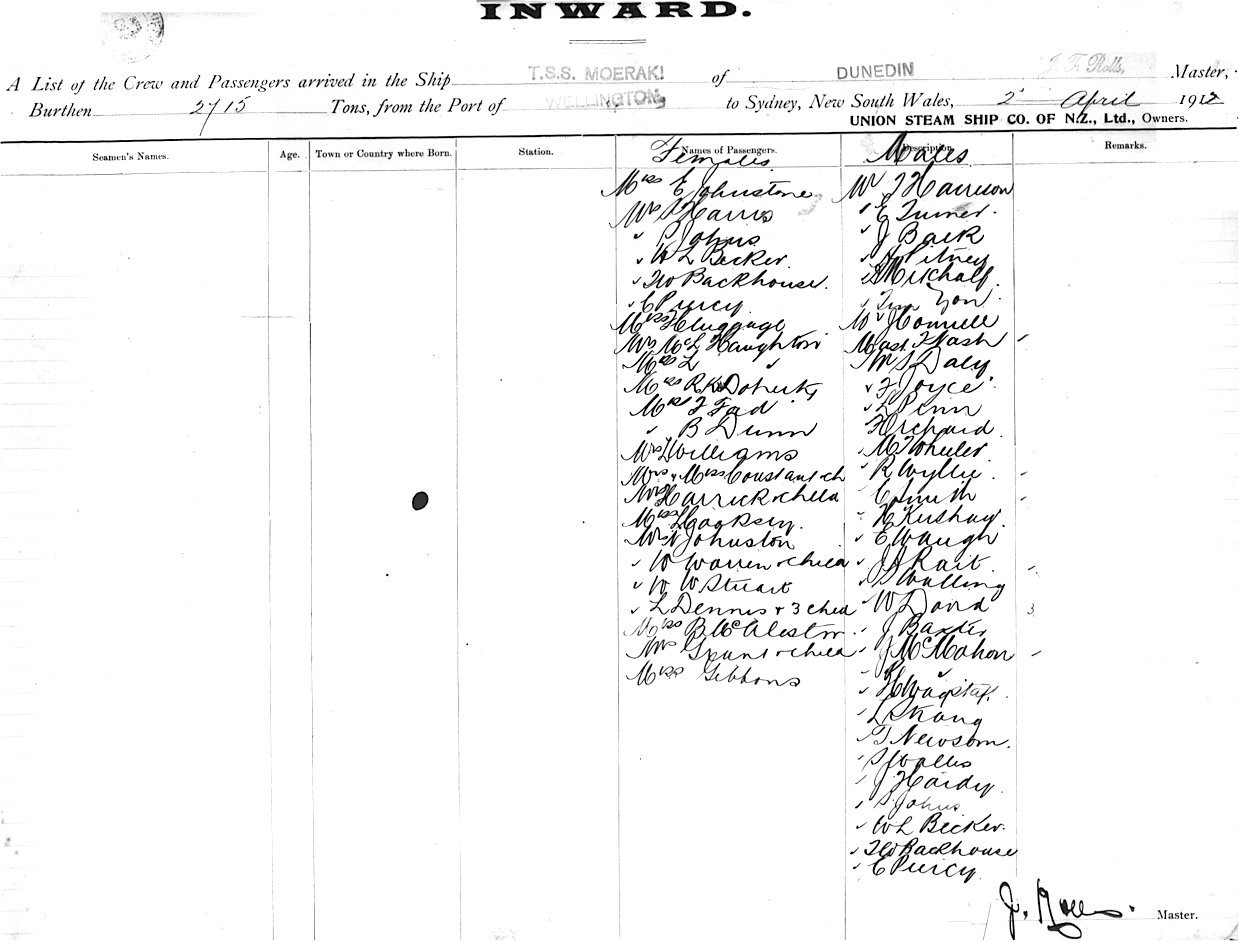 INWARD.
A List of the Crew and Passengers arrived in the Ship T.S.S. MOERAKI of DUNEDIN J. F. Rolls, Master,
Burthen 2715 Tons, from the Port of WELLINGTON, to Sydney, New South Wales, 2 April 1912
UNION STEAM SHIP CO. OF N.Z., Ltd., Owners.
Seamen's Names. Age. Town or Country where Born. Station. Names of Passengers. Description Remarks.
Females
Miss E Johnstone
Mrs S Harris
" S Johns
" W L Becker
" F W Backhouse.
" E Piercy
Miss H Luggage
Mrs McL Haughton
Miss L "
Miss R K Doherty
Miss F Fad
" B Dunn
Mrs Williams
Mrs & Miss Constant & ch
Mrs Harrick & child
Miss L Cooksey.
Mrs N Johnston
" W Warren & child
" W W Stuart
" L Dennis & 3 child
Miss B McAleston
Mrs Grant & child
Miss Gibbons
Males
Mr J Harrison
" E Turner.
" J Back
" A Pitney
" Metchalf
" Yon
Mr J Connell
Mast F Nash
Mr S Daly
" F Joyce
" L Penn
" Orchard
" M Wheeler
" R Wyllie
" C Smith
" H Kushay
" E Waugh
" J A Rait
" S Walling
" W David
" J Baxter
" J McMahon
" K "
" H Wagstaf.
" L Strang
" T Newsom.
" S Wallis
" J Hardy
" S Johns
" W L Becker.
" F W Backhouse
" E Piercy
J. Rolls. Master.